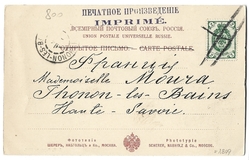 800
ПЕЧАТНОЕ ПРОИЗВЕДЕНІЕ
IMPRIMÉ.
ВСЕМІРНЫЙ ПОЧТОВЫЙ СОЮЗЪ. РОССІЯ.
UNION POSTALE UNIVERSELLE. RUSSIE.
ОТКРЫТОЕ ПИСЬМО. — CARTE POSTALE.
THONON-LES-B
Франція
Mademoiselle Moura
Thonon-les-Bains
Haute-Savoie.
Фототипія
Phototypie
ШЕРЕРЪ, НАБГОЛЬЦЪ и Ко., МОСКВА.
SCHERER, NABHOLZ & Co., MOSCOU.